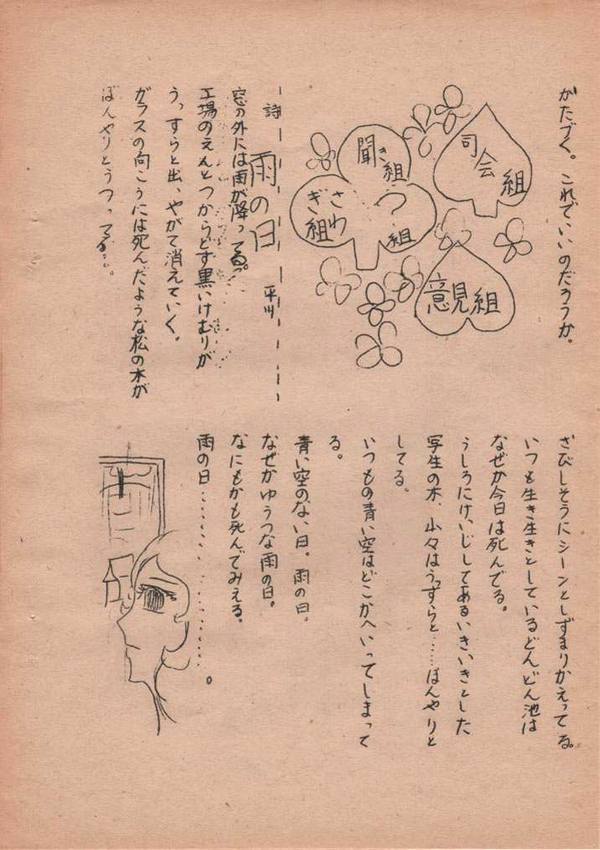 がたづく。これでいいのだろうか。
司会組
聞き組
さわぎ組
?組
意見組
詩 雨の日 平川
窓の外には雨が降ってる。
工場のえんとつからどす黒いけむりが
うっすらと出、やがて消えていく。
ガラスの向こうには死んだような松の木が
ぼんやりとうつってる。
さびしそうにシーンとしずまりかえってる。
いつも生き生きとしているどんどん池は
なぜか今日は死んでる。
うしろにけいじしてあるいきいきとした
写生の木、山々はうっすらと……ぼんやりと
してる。
いつもの青い空はどこかへいってしまって
る。
青い空のない日。雨の日。
なぜかゆううつな雨の日。
なにもかも死んでみえる。
雨の日………………。